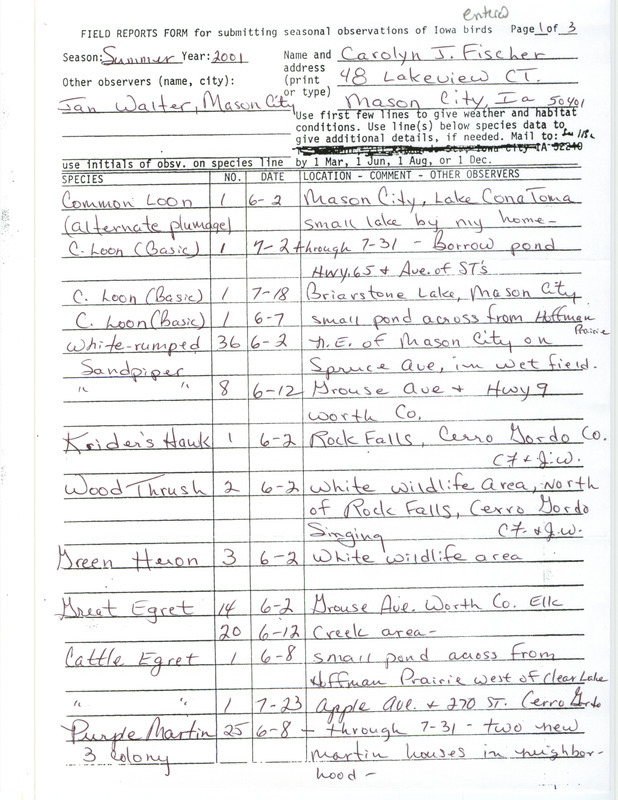 entered
FIELD REPORTS FORM for submitting seasonal observations of Iowa birds Page 1 of 3
Season: Summer Year: 2001 Name and Carolyn J. Fischer
address 48 Lakeview CT.
Other observers (name, city): (print
or type) Mason City, Ia 50401
Jan Walter, Mason City
Use first few lines to give weather and habitat
conditions. Use line(s) below species data to
give additional details, if needed. Mail to:
Iowa City IA 52240
use initials of obsv. on species line by 1 Mar, 1 Jun, 1 Aug, or 1 Dec.
SPECIES NO. DATE LOCATION - COMMENT - OTHER OBSERVERS
Common Loon 1 6-2 Mason City, Lake Cona Toma
(alternate plumage) small lake by my home-
C. Loon (Basic) 1 7-2 through 7-31 - Borrow pond
Hwy. 65 + Ave. of ST's
C. Loon (Basic) 1 7-18 Briarstone Lake, Mason City
C. Loon (Basic) 1 6-7 small pond across from Hoffman
Prairie
White-rumped 36 6-2 n.E. of Mason City on
Sandpiper Spruce Ave, in wet field.
" " 8 6-12 Grouse Ave + Hwy 9
Worth Co.
Krider's Hawk 1 6-2 Rock Falls, Cerro Gordo Co.
CF & J.W.
Wood Thrush 2 6-2 White Wildlife Area, North
of Rock Falls, Cerro Gordo
Singing CF. & J.W.
Green Heron 3 6-2 White wildlife area
Great Egret 14 6-2 Grouse Ave. Worth Co. Elk
20 6-12 Creek area-
Cattle Egret 1 6-8 small pond across from
Hoffman Prairie west of Clear Lake
" " 1 7-23 Apple Ave. + 270 ST. Cerro Gordo
Purple Martin 25 6-8 - through 7-31 - two new
3 colony martin houses in neighbor-
hood -